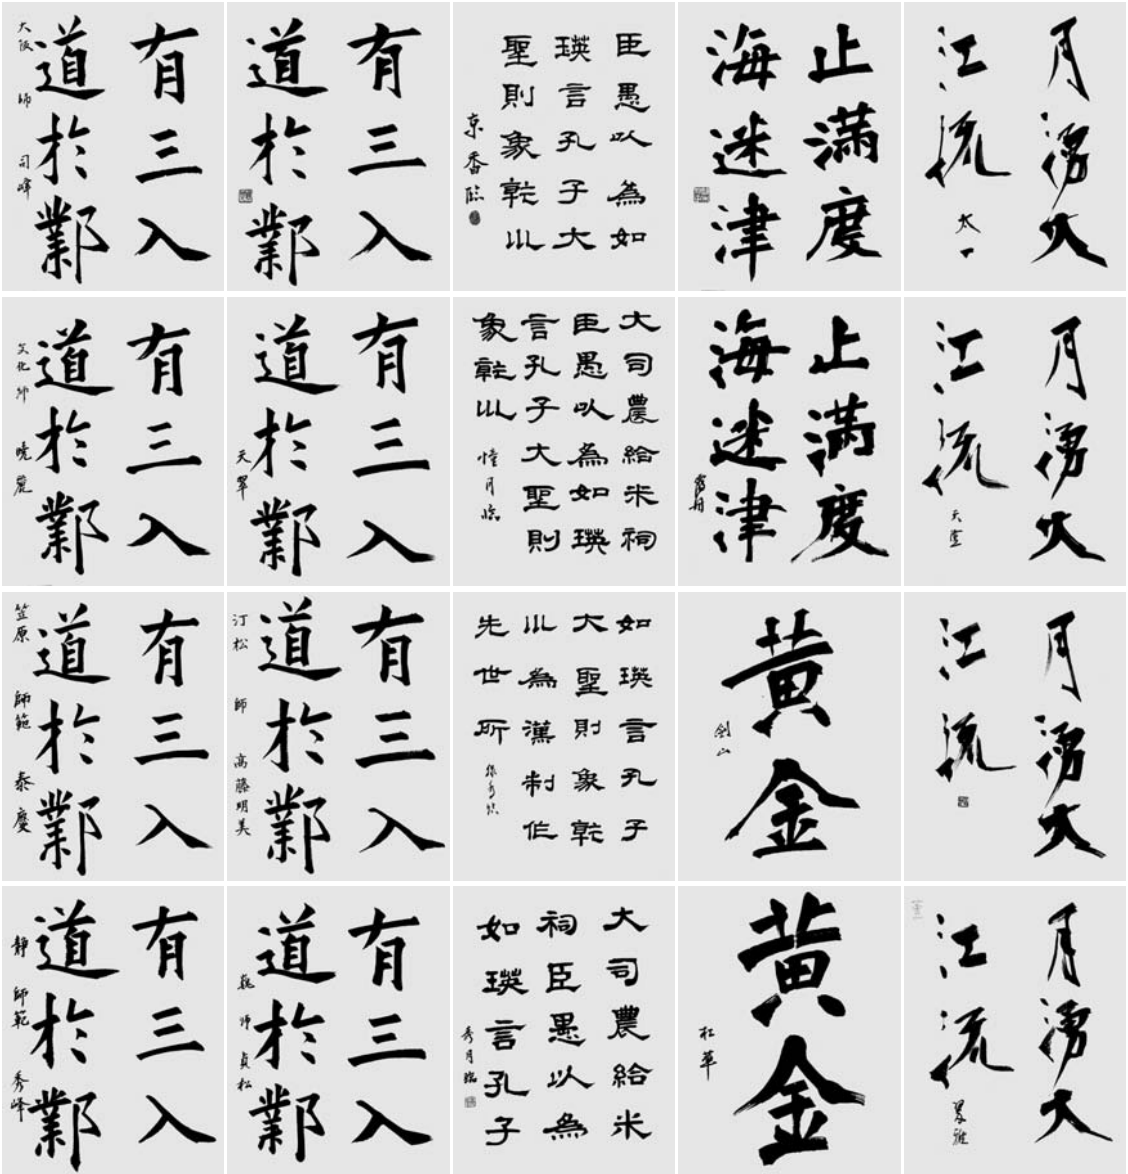 有三入
道於鄴
大阪 師 司峰
有三入
道於鄴
臣愚以為如
瑛言孔子大
聖則象乾巛
京香臨
止滿度
海迷津
月湧大
江流
太一
有三入
道於鄴
文化 師 曉麗
有三入
道於鄴
天翠
大司農給米祠
臣愚以為如瑛
言孔子大聖則
象乾巛
憧月臨
止滿度
海迷津
月湧大
江流
有三入
道於鄴
笠原 師範 泰慶
有三入
道於鄴
汀松 師 高藤明美
如瑛言孔子
大聖則象乾
巛為漢制作
先世所
黃金
劍山
月湧大
江流
有三入
道於鄴
靜 師範 秀峰
有三入
道於鄴
巍 師 貞松
大司農給米
祠臣愚以為
如瑛言孔子
秀月臨
黃金
松華
月湧大
江流